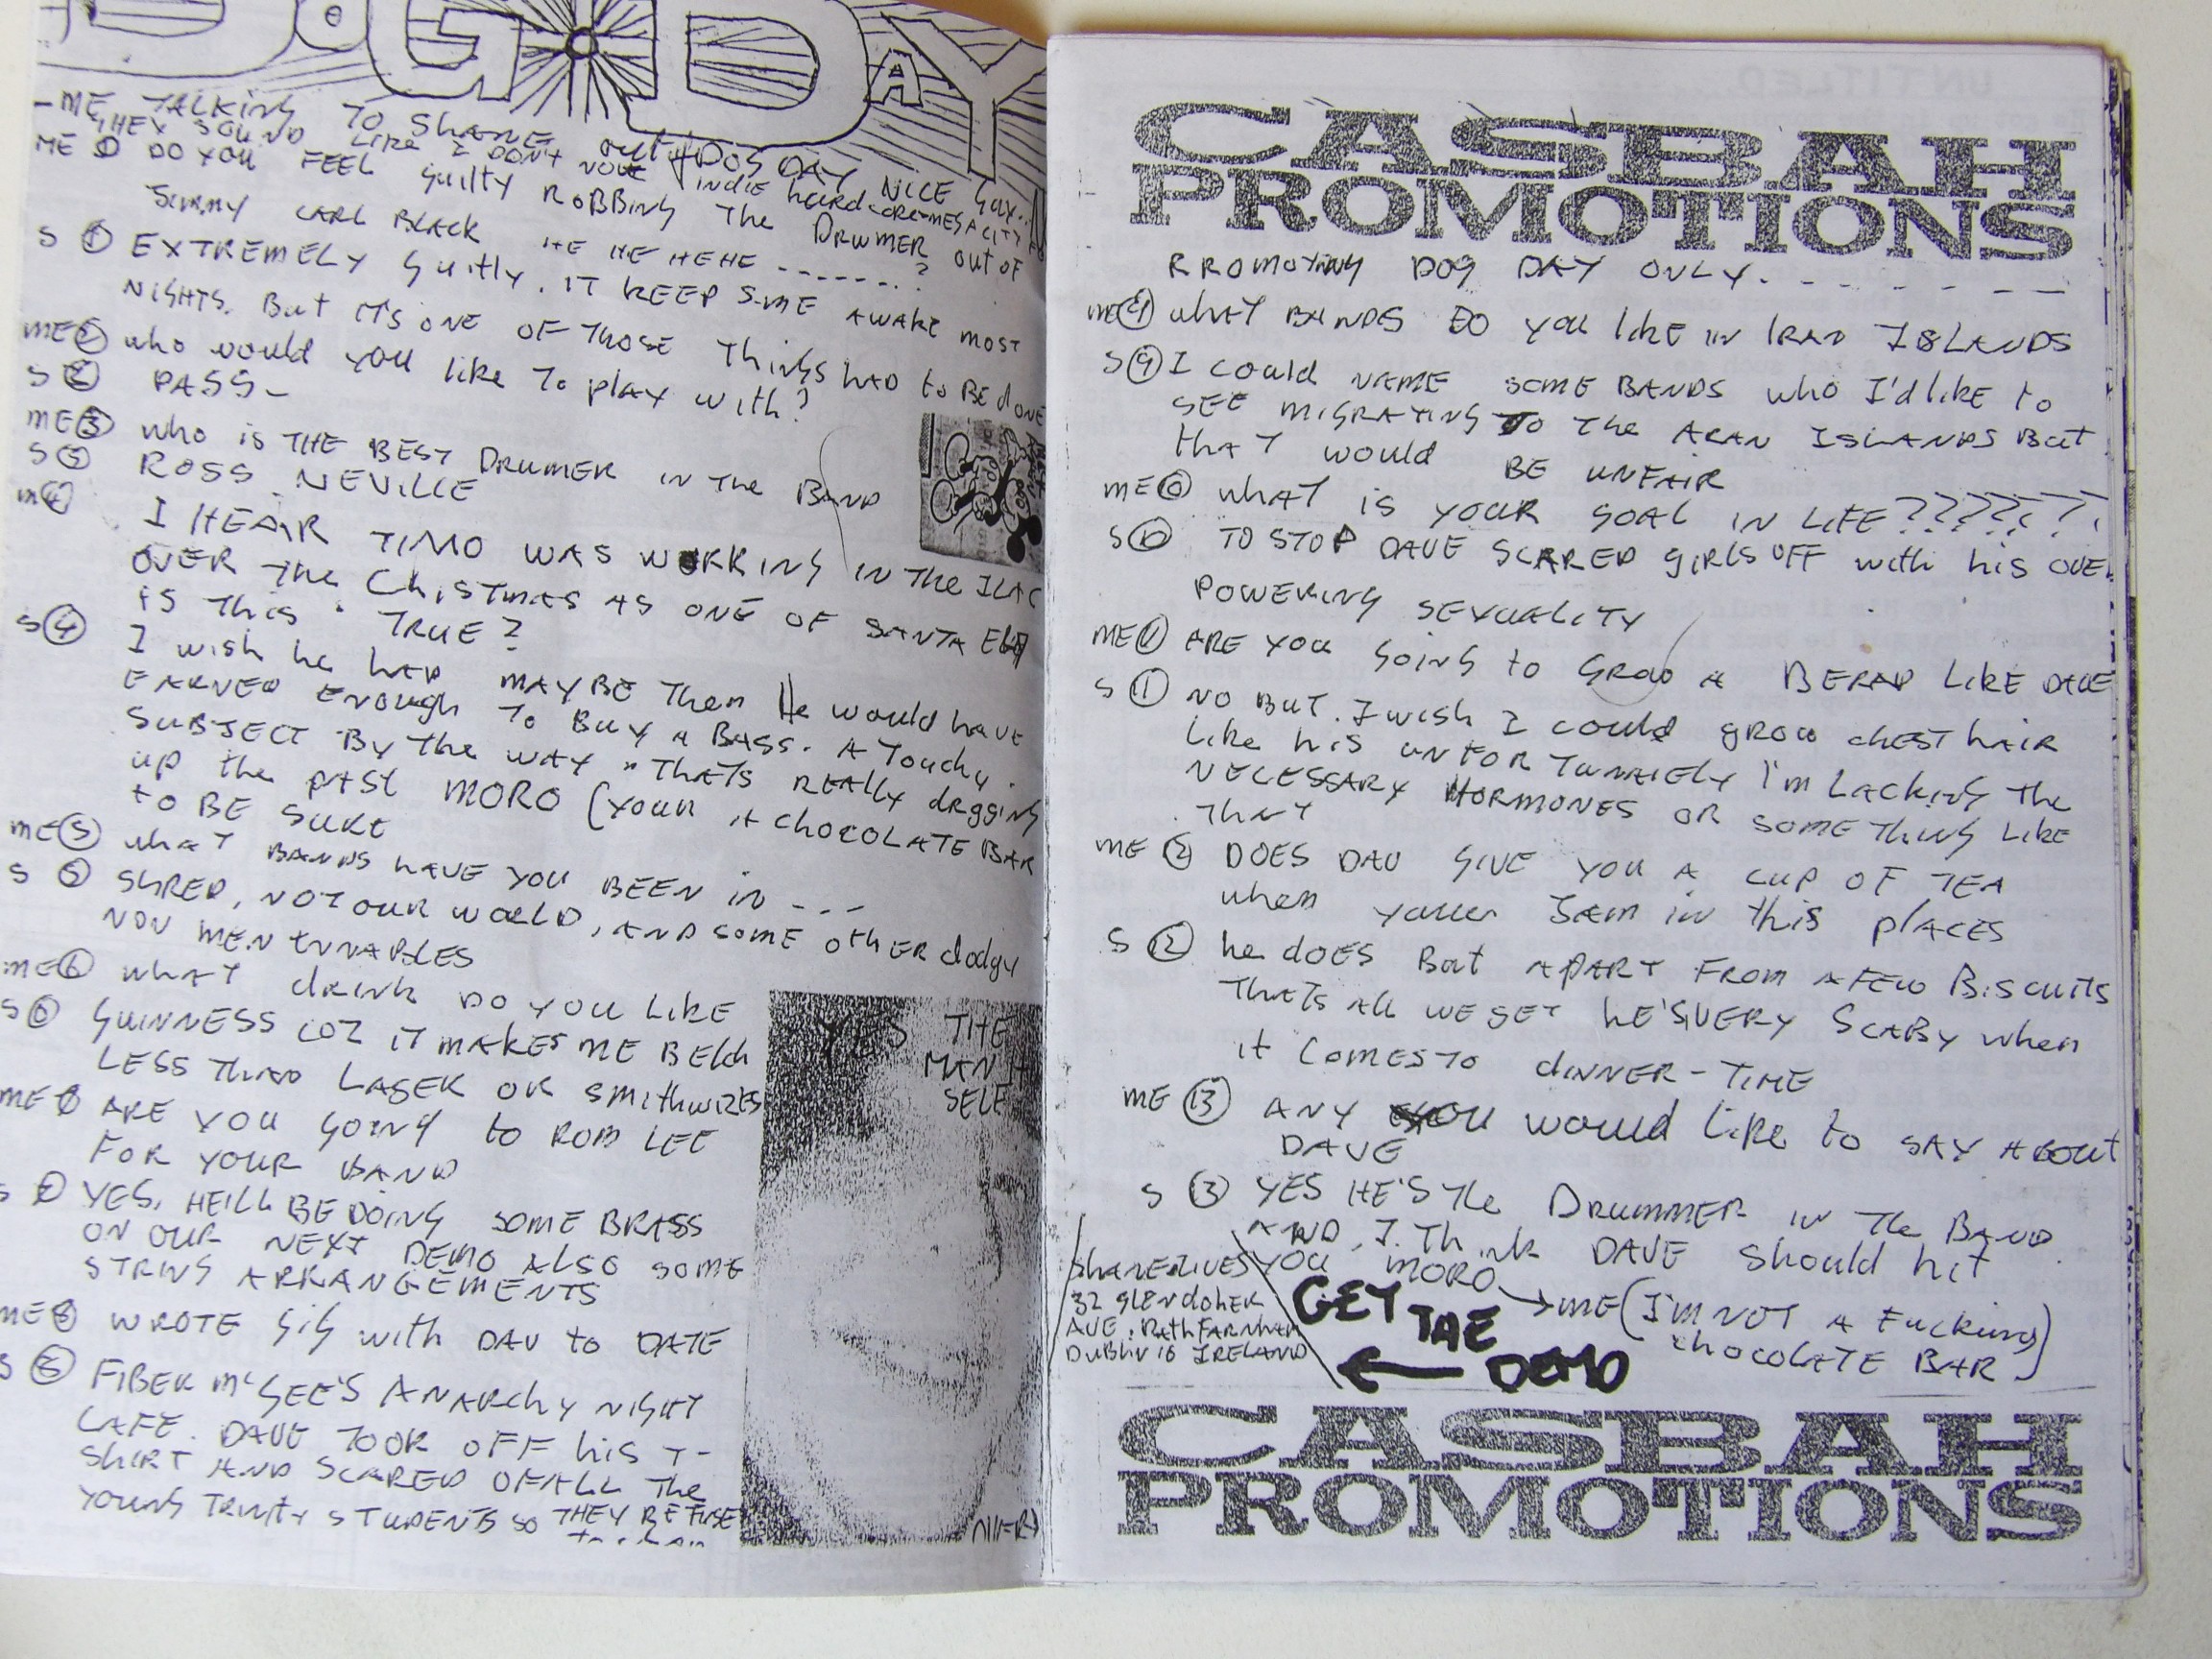 DOG DAY
- ME TALKING TO SHANE OUT OF DOG DAY NICE GUY..
THEY SOUND LIKE I DON'T NOW INDIE hardcore
ME ① DO YOU FEEL guilty ROBBING THE DRUMER OUT OF
JIMMY CARL BLACK HE HE HEHE ------- ?
S ① EXTREMELY guilty. IT KEEP S ME AWAKE MOST
NIGHTS. BUT IT'S ONE OF THOSE THINGS HAD to BE done
ME② who would you like To play with?
S ② PASS-
ME③ who is THE BEST DRUMER IN The BAND
S ③ ROSS NEVILLE
ME④ I HEAR TIMO WAS WORKING IN THE ILAC
OVER The CHISTMAS AS ONE OF SANTA
IS THIS TRUE?
S④ I wish he HAD MAYBE Then He would have
EARNED ENOUGH TO BUY A BASS. A TOUCHY
SUBJECT BY THE WAY "THATS REALLY dRGGING
UP the PAST MORO (YOUR A CHOCOLATE BAR
TO BE SURE
ME⑤ whAT BANDS HAVE YOU BEEN IN ---
S ⑤ SHRED, NOT OUR WORLD, AND SOME OTHER dodgy
NON MENTUNABLES
ME⑥ whAT drink DO YOU LIKE
S⑥ GUINNESS COZ IT MAKES ME BElch
LESS THAN LAGER OR SMITHWIZES
ME⑦ ARE YOU GOING to ROB LEE
FOR YOUR BAND
S ⑦ YES, HE'LL BE DOING SOME BRASS
ON OUR NEXT DEMO ALSO SOME
STRING ARRANGEMENTS
ME⑧ WROTE GIG with DAV to DATE
S ⑧ FIBER McGEE'S ANARCHY NIGHT
CAFE. DAVE TOOK OFF his T-
SHIRT AND SCARED OFALL The
YOUNG TRINITY STUDENTS SO THEY REFUSE
YES THE
MAN H
SELF
CASBAH
PROMOTIONS
RROMOTING DOG DAY ONLY. - - - - - - -
ME⑨ whAT BANDS DO YOU like IN IRAN ISLANDS
S⑨ I could NAME SOME BANDS who I'd like to
SEE MIGRATING TO The ARAN ISLANDS BUT
thAT would BE UNFAIR
ME⑩ whAT is YOUR GOAL IN LIFE ????????
S⑩ TO STOP DAVE SCARED GIRLS OFF with his OVER
POWERING SEXUALITY
ME⑪ ARE YOU GOING to GROW A BERAD LIKE DAVE
S ⑪ NO BUT. I wish I could grow CHEST hAIR
like his UNFORTUNATELY I'm LACKING The
NECESSARY HORMONES OR SOMETHING LIKE
THAT
ME ⑫ DOES DAV GIVE YOU A CUP OF TEA
when YOUR JAM IN this PLACES
S ⑫ he DOES BUT APART FROM A FEW BISCUITS
THATS All WE GET hE'S VERY SCABY when
it COMES TO dINNER-TIME
ME ⑬ ANY YOU would like to SAY ABOUT
DAVE
S ⑬ YES HE'S The DRUMMER IN The BAND
AND, I Think DAVE Should hit
YOU MORO → ME (I'M NOT A Fucking
chocolATE BAR)
SHANE LIVES
32 GLENDOHER
AVE, RATHFARNHAM
DUBLIN 16 IRELAND
GET THE
← DEMO
CASBAH
PROMOTIONS